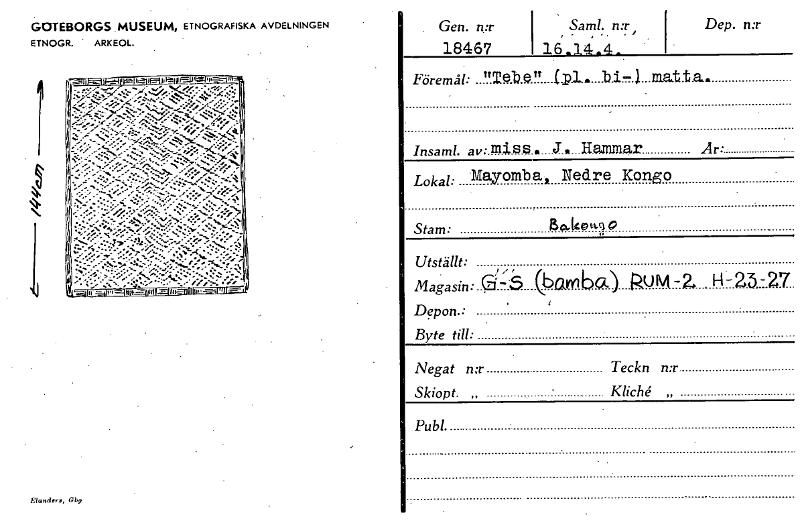 GÖTEBORGS MUSEUM, ETNOGRAFISKA AVDELNINGEN
ETNOGR. ARKEOL.
144 cm
Elanders, Gbg
Gen. n:r Saml. n:r, Dep. n:r
18467 16.14.4.
Föremål: "Tebe" (pl. bi-) matta.
Insaml. av: miss. J. Hammar År:
Lokal: Mayomba, Nedre Kongo
Stam: Bakongo
Utställt:
Magasin: G-S (bamba) RUM-2 H-23-27
Depon.:
Byte till:
Negat n:r Teckn n:r
Skiopt. „ Kliché „
Publ.